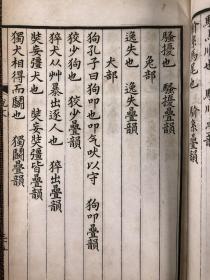 騷擾也 騷擾疊韻
兔部
逸失也 逸失疊韻
犬部
狗孔子曰狗叩也叩气吠以守 狗叩疊韻
狡少狗也 狡少疊韻
猝犬从艸暴出逐人也 猝出疊韻
奘妄彊犬也 奘妄奘彊皆疊韻
獨犬相得而鬭也 獨鬭疊韻